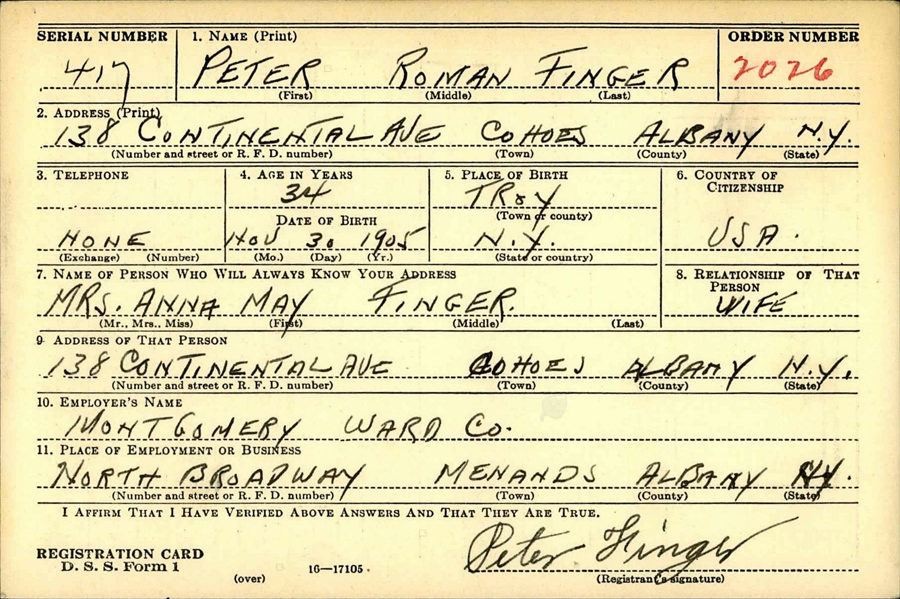 SERIAL NUMBER 1. NAME (Print) ORDER NUMBER
417 PETER ROMAN FINGER 2026
(First) (Middle) (Last)
2. ADDRESS (Print)
138 CONTINENTAL AVE COHOES ALBANY N.Y.
(Number and street or R. F. D. number) (Town) (County) (State)
3. TELEPHONE 4. AGE IN YEARS 5. PLACE OF BIRTH 6. COUNTRY OF
CITIZENSHIP
34 TROY
DATE OF BIRTH (Town or county)
NONE NOV 30 1905 N.Y. USA.
(Exchange) (Number) (Mo.) (Day) (Yr.) (State or country)
7. NAME OF PERSON WHO WILL ALWAYS KNOW YOUR ADDRESS 8. RELATIONSHIP OF THAT
PERSON
MRS. ANNA MAY FINGER. WIFE
(Mr., Mrs., Miss) (First) (Middle) (Last)
9. ADDRESS OF THAT PERSON
138 CONTINENTAL AVE COHOES ALBANY N.Y.
(Number and street or R. F. D. number) (Town) (County) (State)
10. EMPLOYER'S NAME
MONTGOMERY WARD CO.
11. PLACE OF EMPLOYMENT OR BUSINESS
NORTH BROADWAY MENANDS ALBANY NY.
(Number and street or R. F. D. number) (Town) (County) (State)
I AFFIRM THAT I HAVE VERIFIED ABOVE ANSWERS AND THAT THEY ARE TRUE.
Peter Finger
REGISTRATION CARD
D. S. S. Form 1 (over) 16—17105 (Registrant's signature)